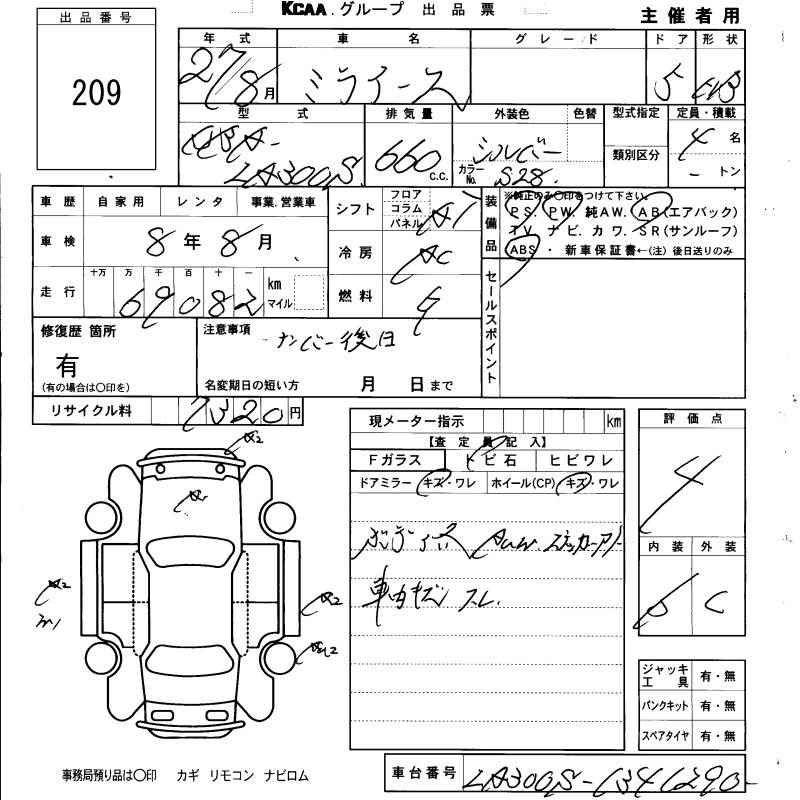 KCAA. グループ 出品票
主催者用
出品番号
209
年式 車名 グレード ドア 形状
27/8月 ミライース 5 HB
型式 排気量 外装色 色替 型式指定 定員・積載
LA300S 660 c.c. シルバー 4 名
カラーNo. S28 類別区分 - トン
車歴 自家用 レンタ 事業.営業車
シフト フロア コラム パネル AT
装備品 ※純正のみ○印をつけて下さい。
PS. PW. 純AW. AB(エアバック)
TV. ナビ. カワ. SR(サンルーフ)
ABS・新車保証書←(注)後日送りのみ
車検 8年8月
冷房 AC
走行 十万 万 千 百 十 一 km マイル
69082
燃料 G
セールスポイント
修復歴 箇所
有
(有の場合は○印を)
注意事項 ナンバー後日
名変期日の短い方 月 日まで
リサイクル料 7320円
現メーター指示 km
【査定員記入】
Fガラス トビ石 ヒビワレ
ドアミラー キズ・ワレ ホイール(CP) キズ・ワレ
車内キズ スレ.
評価点
4
内装 外装
C
A2
A2
A2
ジャッキ工具 有・無
パンクキット 有・無
スペアタイヤ 有・無
事務局預り品は○印 カギ リモコン ナビロム
車台番号 LA300S-1341290-